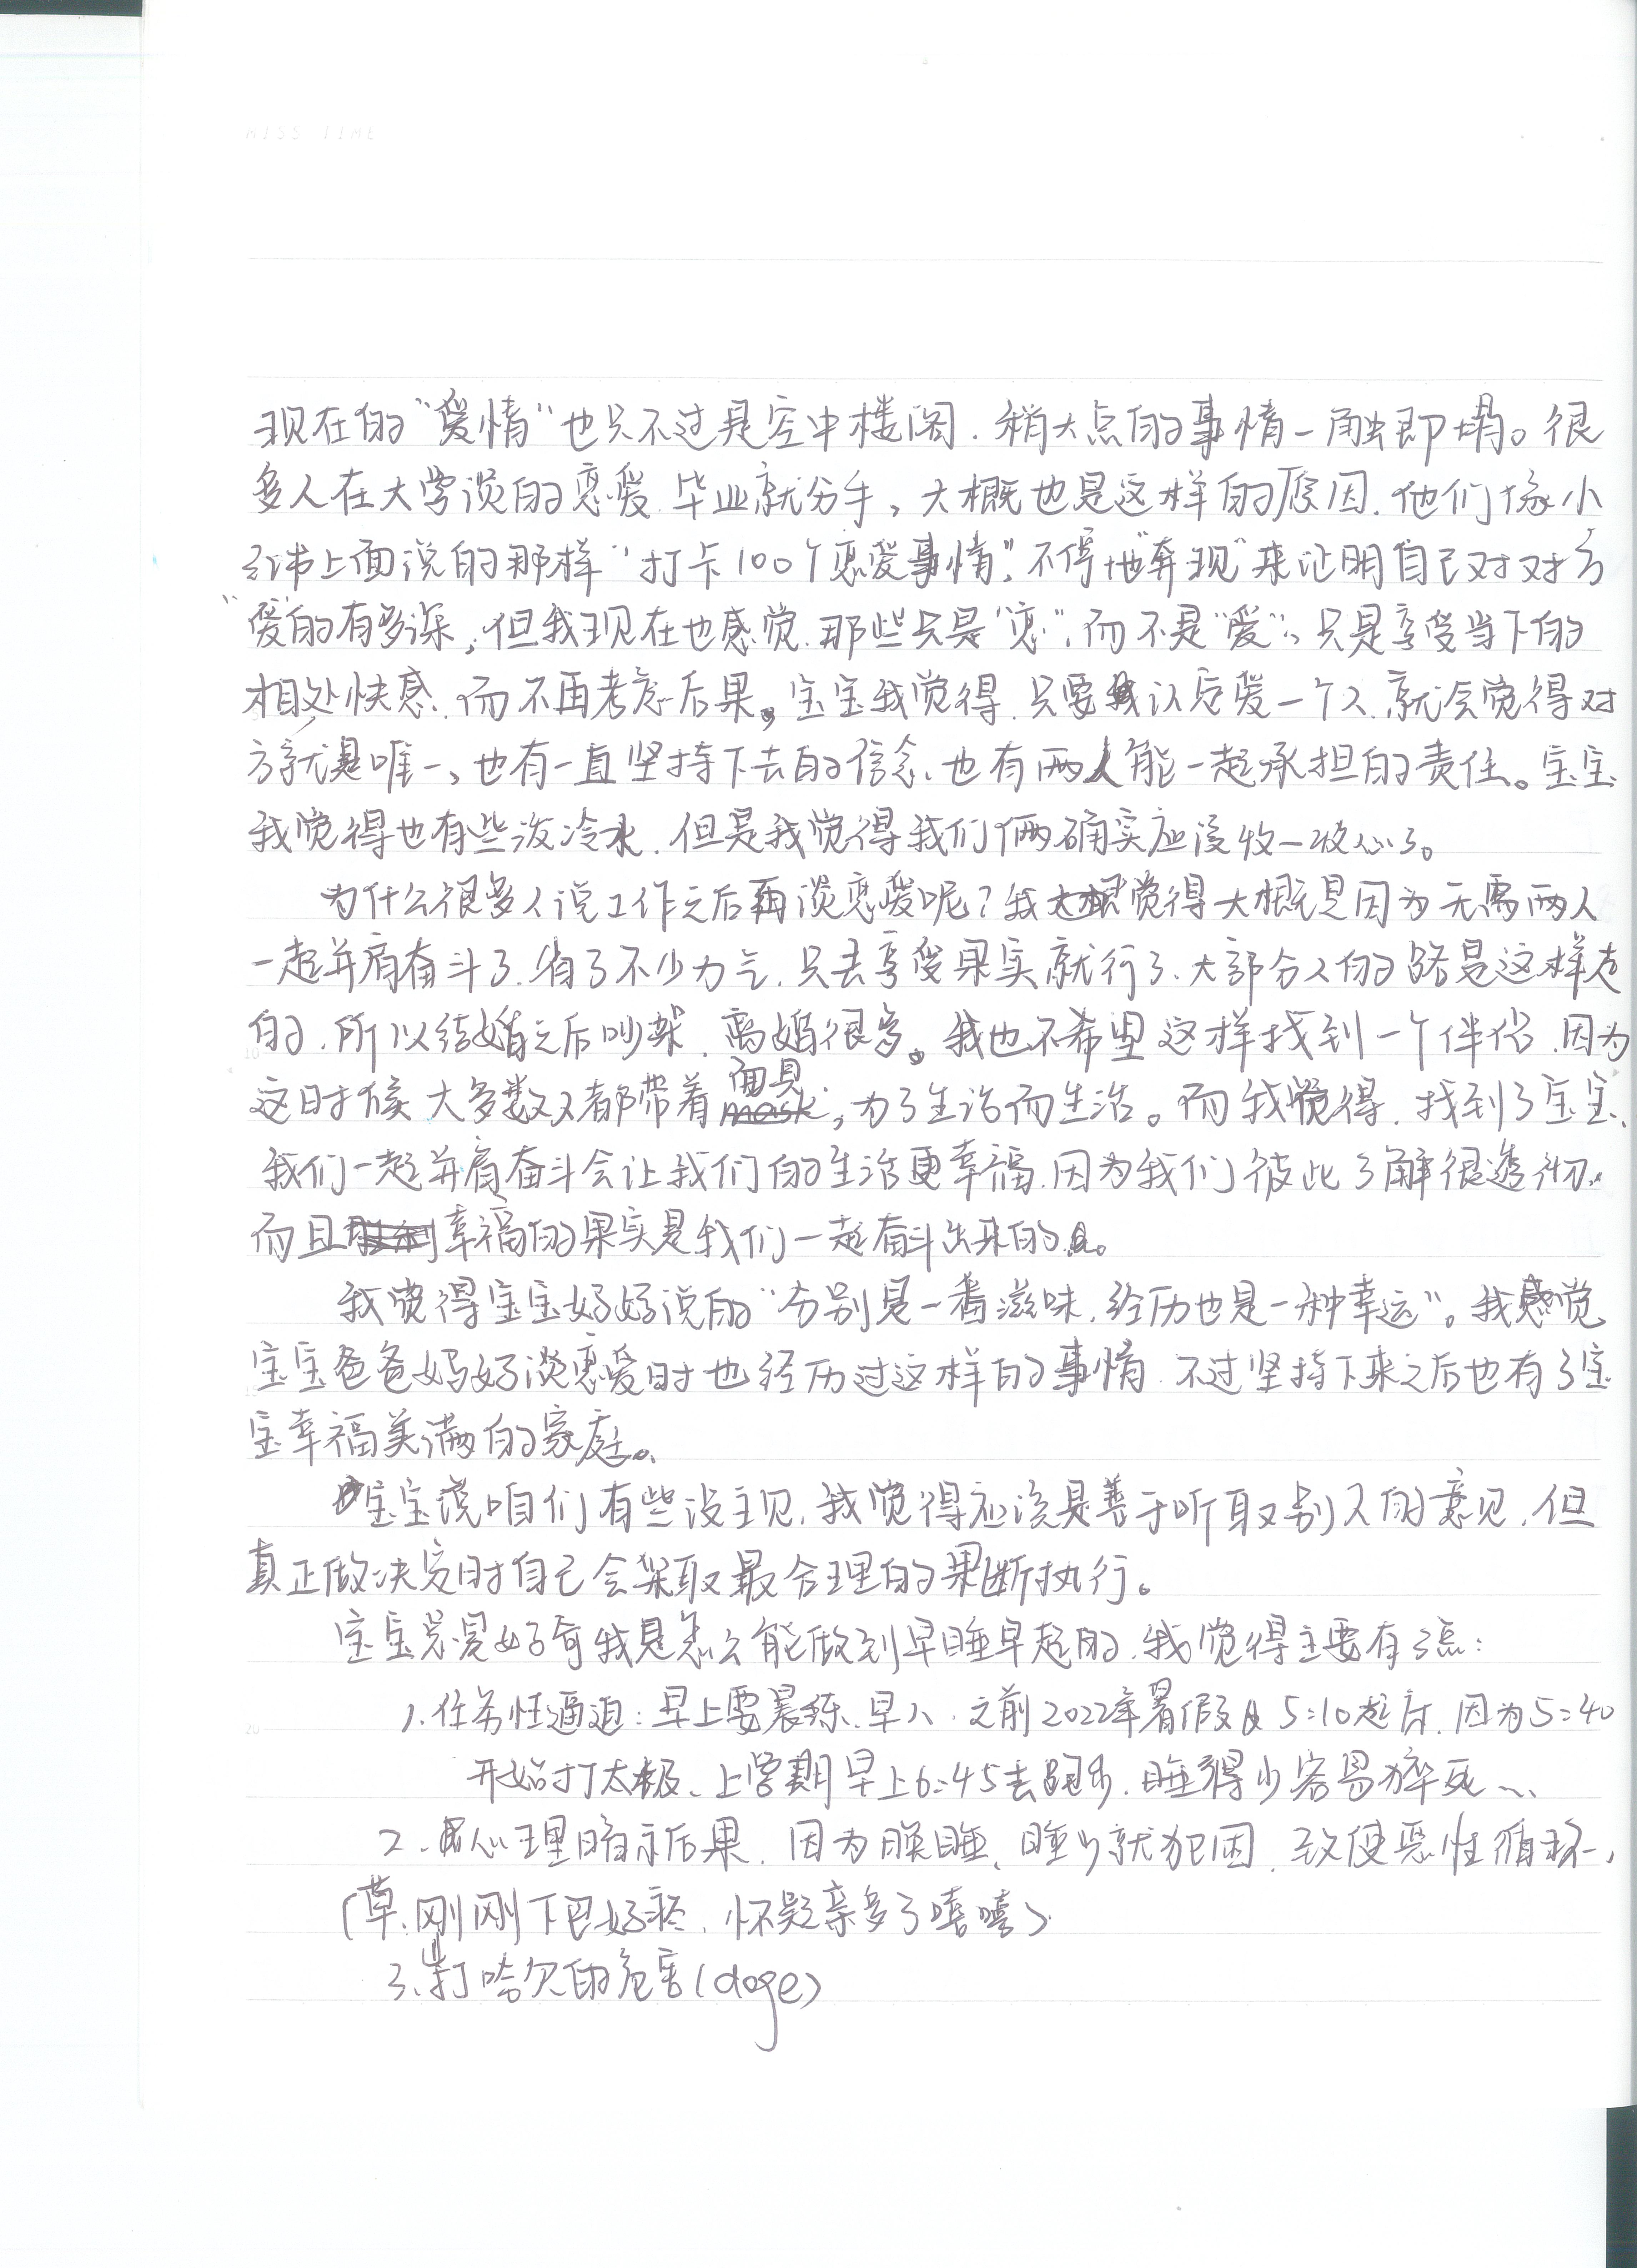 MISS TIME
现在的“爱情”也只不过是空中楼阁.稍大点的事情一触即塌。很
多人在大学谈的恋爱.毕业就分手,大概也是这样的原因.他们像小
红书上面说的那样“打卡100个恋爱事情”.不停地“奔现”来证明自己对对方
“爱”的有多深,但我现在也感觉.那些只是“恋”,而不是“爱”,只是享受当下的
相处快感.而不再考虑后果。宝宝我觉得.只要我认定爱一个人.就会觉得对
方就是唯一,也有一直坚持下去的信念、也有两人能一起承担的责任。宝宝
我觉得也有些泼冷水.但是我觉得我们俩确实应该收一收心了。
为什么很多人说工作之后再谈恋爱呢?我觉得大概是因为无需两人
一起并肩奋斗了.省了不少力气.只去享受果实就行了、大部分人的路是这样走
的.所以结婚之后吵架、离婚很多。我也不希望这样找到一个伴侣.因为
这时候大多数人都带着面具,为了生活而生活。而我觉得.找到了宝宝、
我们一起并肩奋斗会让我们的生活更幸福.因为我们彼此了解很透彻.
而且幸福的果实是我们一起奋斗出来的。
我觉得宝宝妈妈说的“分别是一番滋味,经历也是一种幸运”。我感觉
宝宝爸爸妈妈谈恋爱时也经历过这样的事情.不过坚持下来之后也有了宝
宝幸福美满的家庭。
宝宝说咱们有些没主见,我觉得应该是善于听取别人的意见.但
真正做决定时自己会采取最合理的果断执行。
宝宝总是好奇我是怎么能做到早睡早起的.我觉得主要有3点:
1.任务性逼迫:早上要晨练、早八.之前2022年暑假5:10起床.因为5:40
开始打太极、上学期早上6:45去跑步.睡得少容易猝死~、
2.心理暗示后果.因为晚睡、睡少就犯困.致使恶性循环、
(草.刚刚下巴好疼.怀疑亲多了嘻嘻)
3、打哈欠的危害(doge)